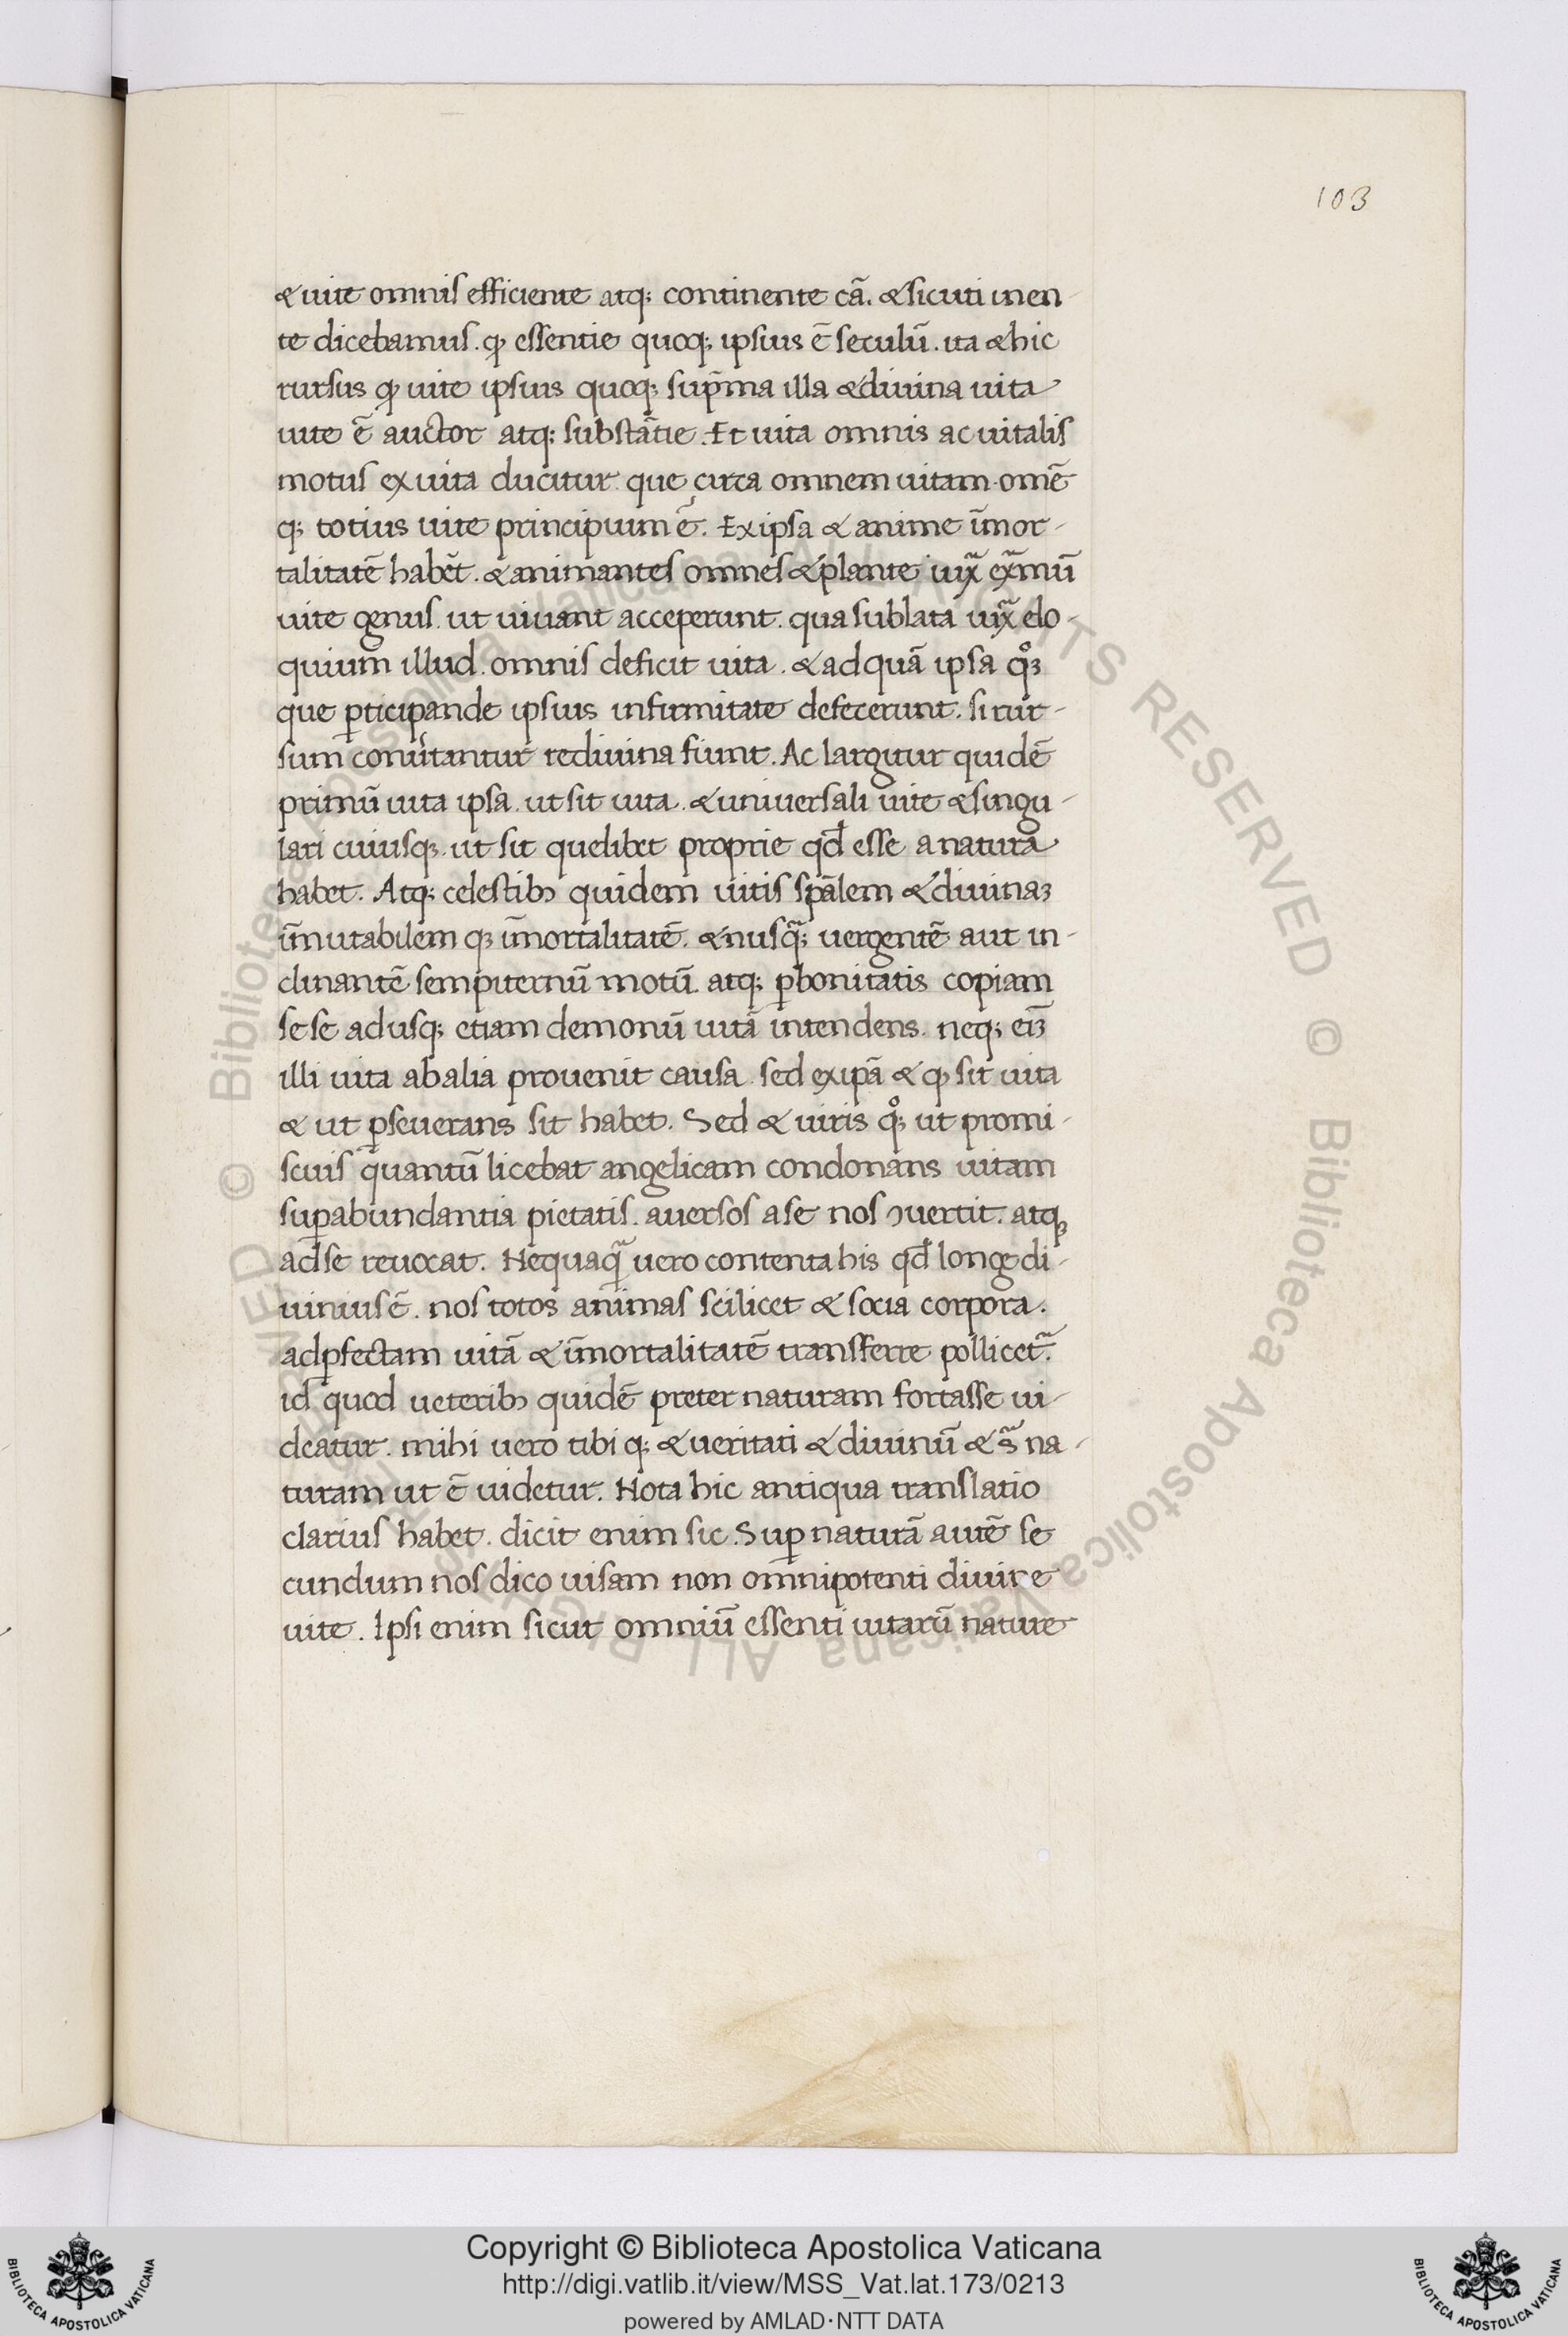 103
& uite omnis efficiente atq; continente cã. & sicuti in en-
te dicebamus. ꝙ essentie quoq; ipsius ẽ seculũ. ita & hic
rursus ꝙ uite ipsius quoq; sup̃ma illa & diuina uita
uite ẽ auctor atq; substãtie. Et uita omnis ac uitalis
motus ex uita ducitur que circa omnem uitam. omẽ
q; totius uite principium ẽ. Ex ipsa & anime ĩmor-
talitatẽ habẽt. & animantes omnes & plante iuxͣ exͣmũ
uite genus. ut uiuant acceperunt. qua sublata iuxͣ elo-
quium illud. omnis deficit uita. & ad quã ipsa qͦꝫ
que ꝑticipande ipsius infirmitate defecerunt. si rur-
sum conũtantur rediuina fiunt. Ac largitur quidẽ
primũ uita ipsa. ut sit uita. & uniuersali uite & singu-
lari cuiusq;. ut sit quelibet proprie qd̃ esse a natura
habet. Atq; celestibꝫ quidem uitis spãlem & diuinaꝫ
ĩmutabilem q; ĩmortalitatẽ. & nusqͣ; uergentẽ aut in-
clinantẽ sempiternũ motũ. atq; ꝑ bonitatis copiam
sese adusq; etiam demonũ uitã intendens. neq; eĩꝫ
illi uita ab alia prouenit causa. sed ex ip̃a & ꝙ sit uita
& ut ꝑseuerans sit habet. Sed & uiris qͦ; ut promi-
scuis quantũ licebat angelicam condonans uitam
suꝑabundantia pietatis. auersos a se nos ꝯuertit. atq;
ad se reuocat. Nequaqͣ uero contenta his qd̃ longe di-
uinius ẽ. nos totos animas scilicet & socia corpora.
ad ꝑfectam uitã & ĩmortalitatẽ transferre pollicetͣ.
id quod ueteribꝫ quidẽ preter naturam fortasse ui-
deatur. mihi uero tibi q; & ueritati & diuinũ & sͣ na-
turam ut ẽ uidetur. Nota hic antiqua translatio
clarius habet. dicit enim sic. Suꝑ naturã autẽ se
cundum nos dico uisam non omnipotenti diuine
uite. Ipsi enim sicut omniũ essenti uitarũ nature
Copyright © Biblioteca Apostolica Vaticana
http://digi.vatlib.it/view/MSS_Vat.lat.173/0213
powered by AMLAD·NTT DATA